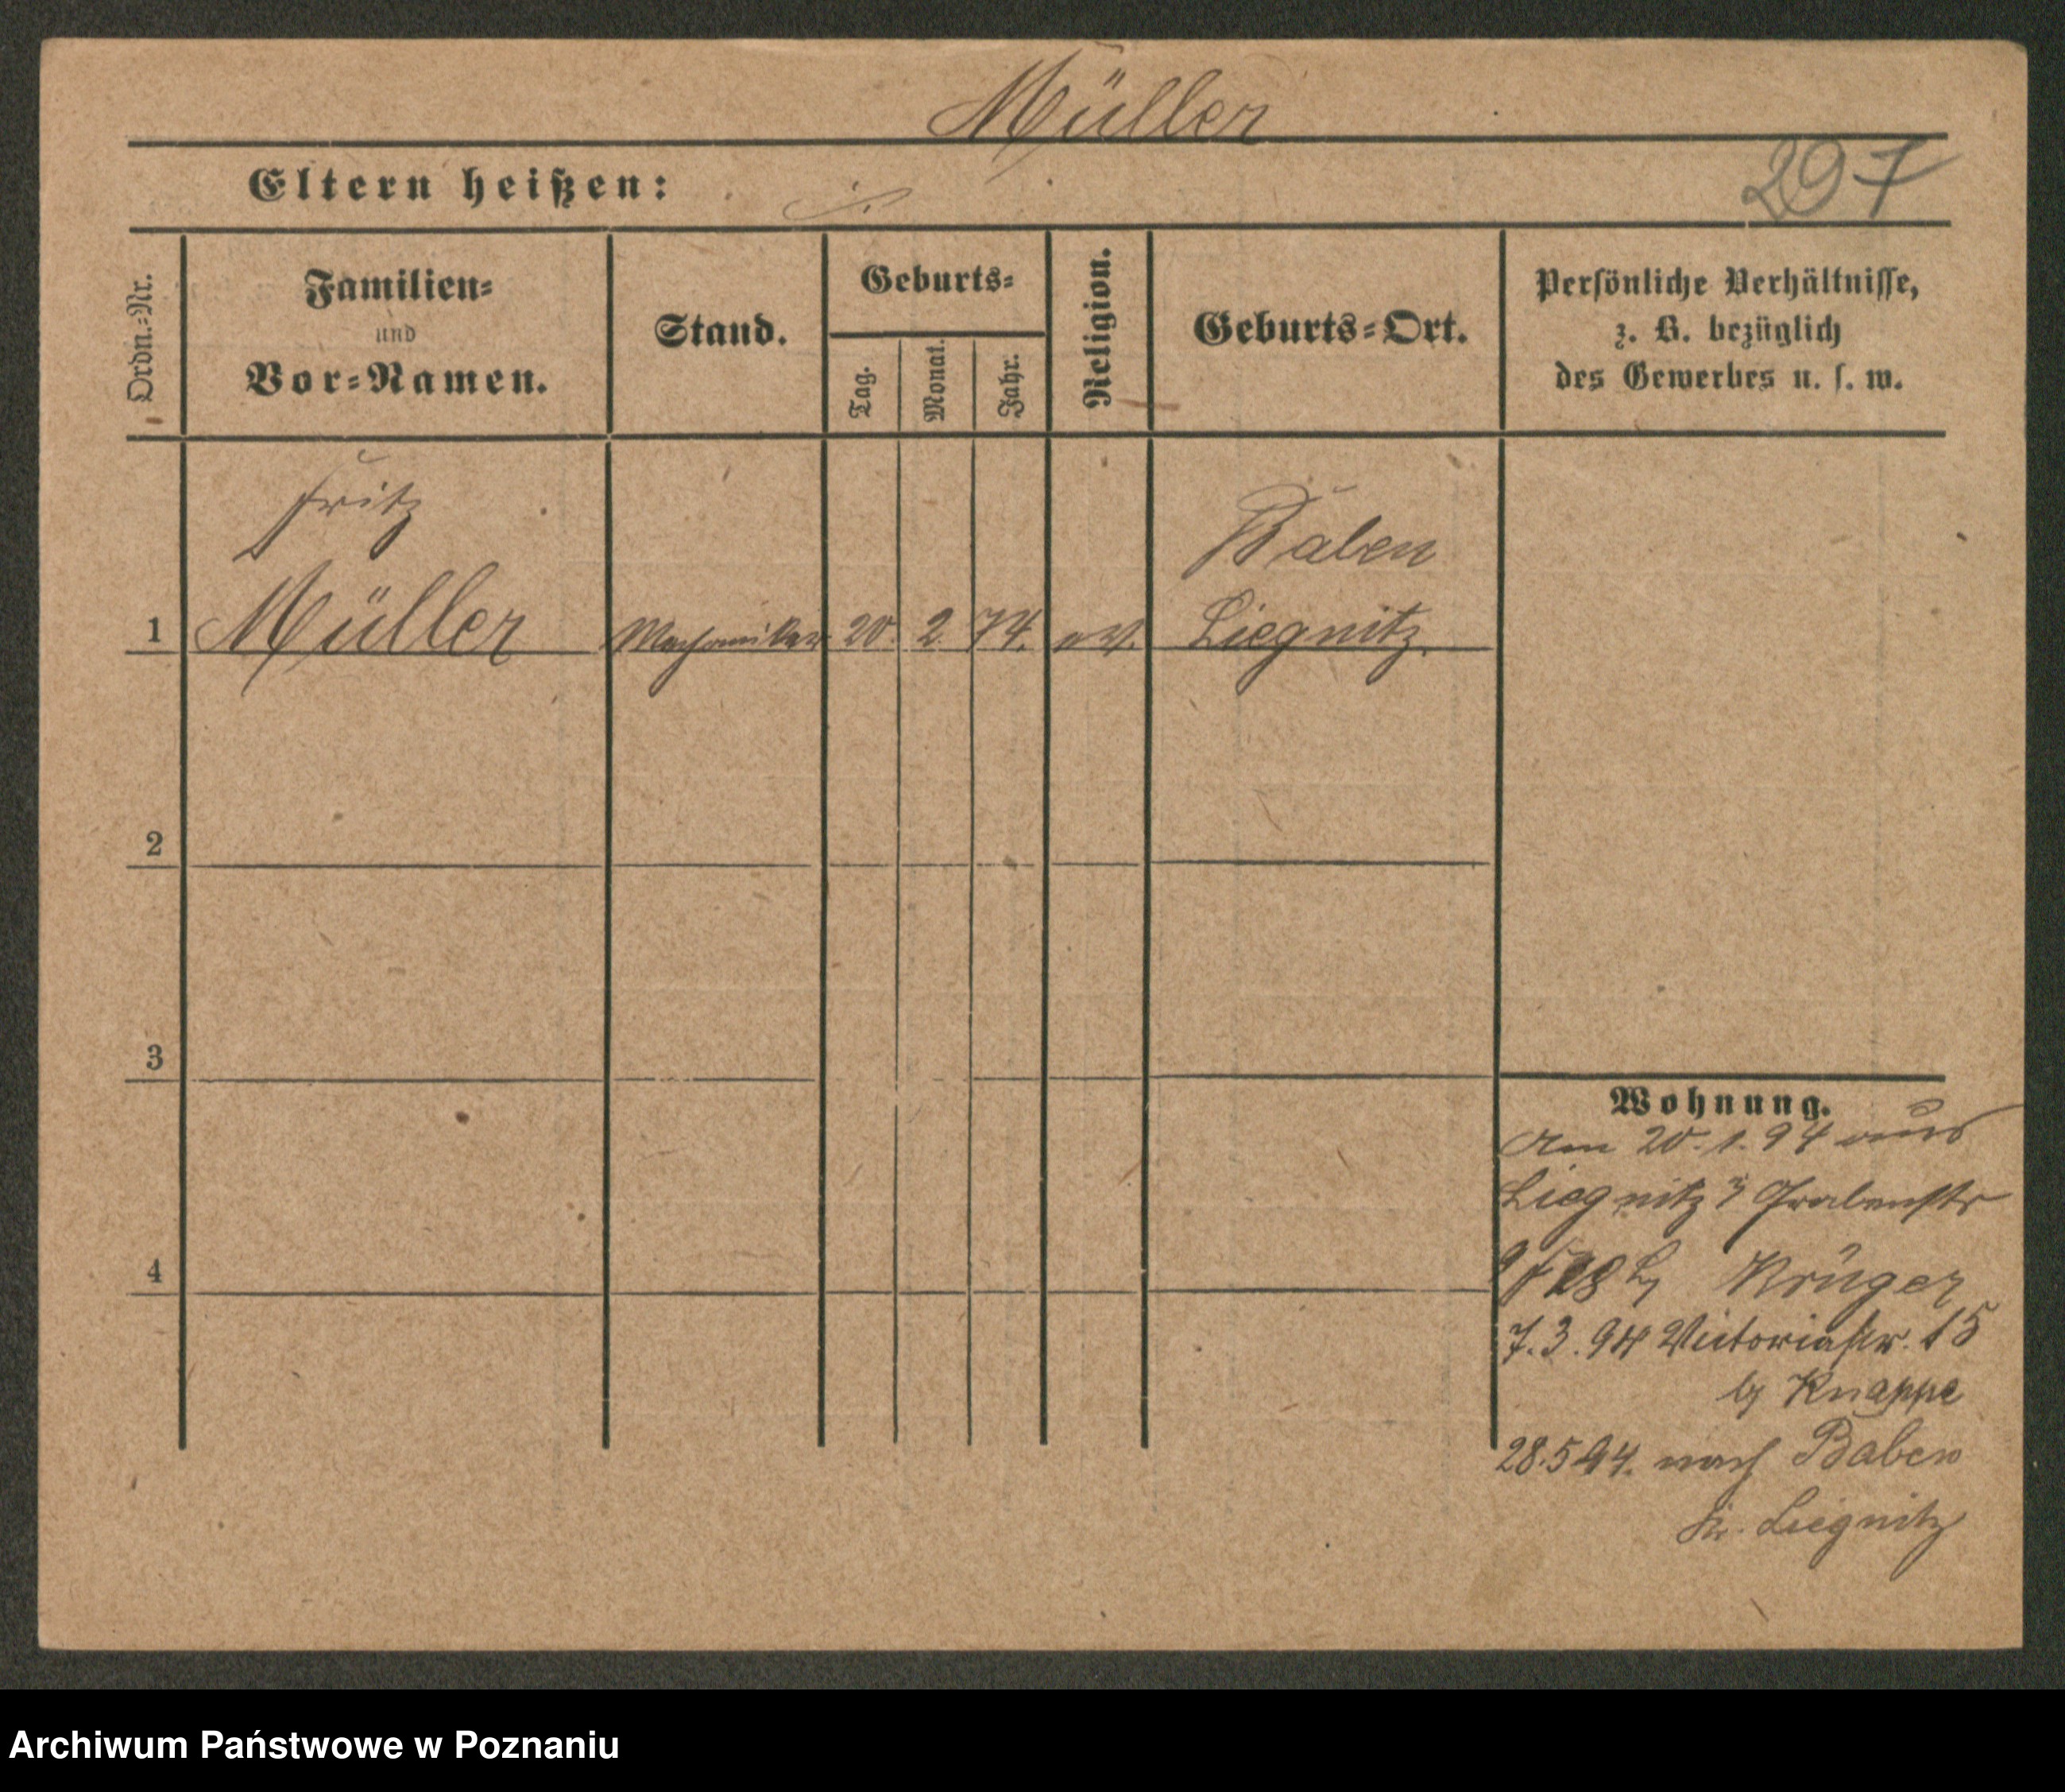 Müller
297
Eltern heißen:
Ordn.=Nr.
Familien=
und
Vor=Namen.
Stand.
Geburts=
Tag.
Monat.
Jahr.
Religion.
Geburts=Ort.
Persönliche Verhältnisse,
z. B. bezüglich
des Gewerbes u. s. w.
Fritz
Baben
1 Müller Mechaniker 20. 2. 74. ev. Liegnitz.
2
3
4
Wohnung.
Am 20.1.94 aus
Liegnitz Grabenstr
Krüger
7.3.94 Victoriastr. 15
b/ Knappe
28.5.94. nach Baben
Kr. Liegnitz
Archiwum Państwowe w Poznaniu